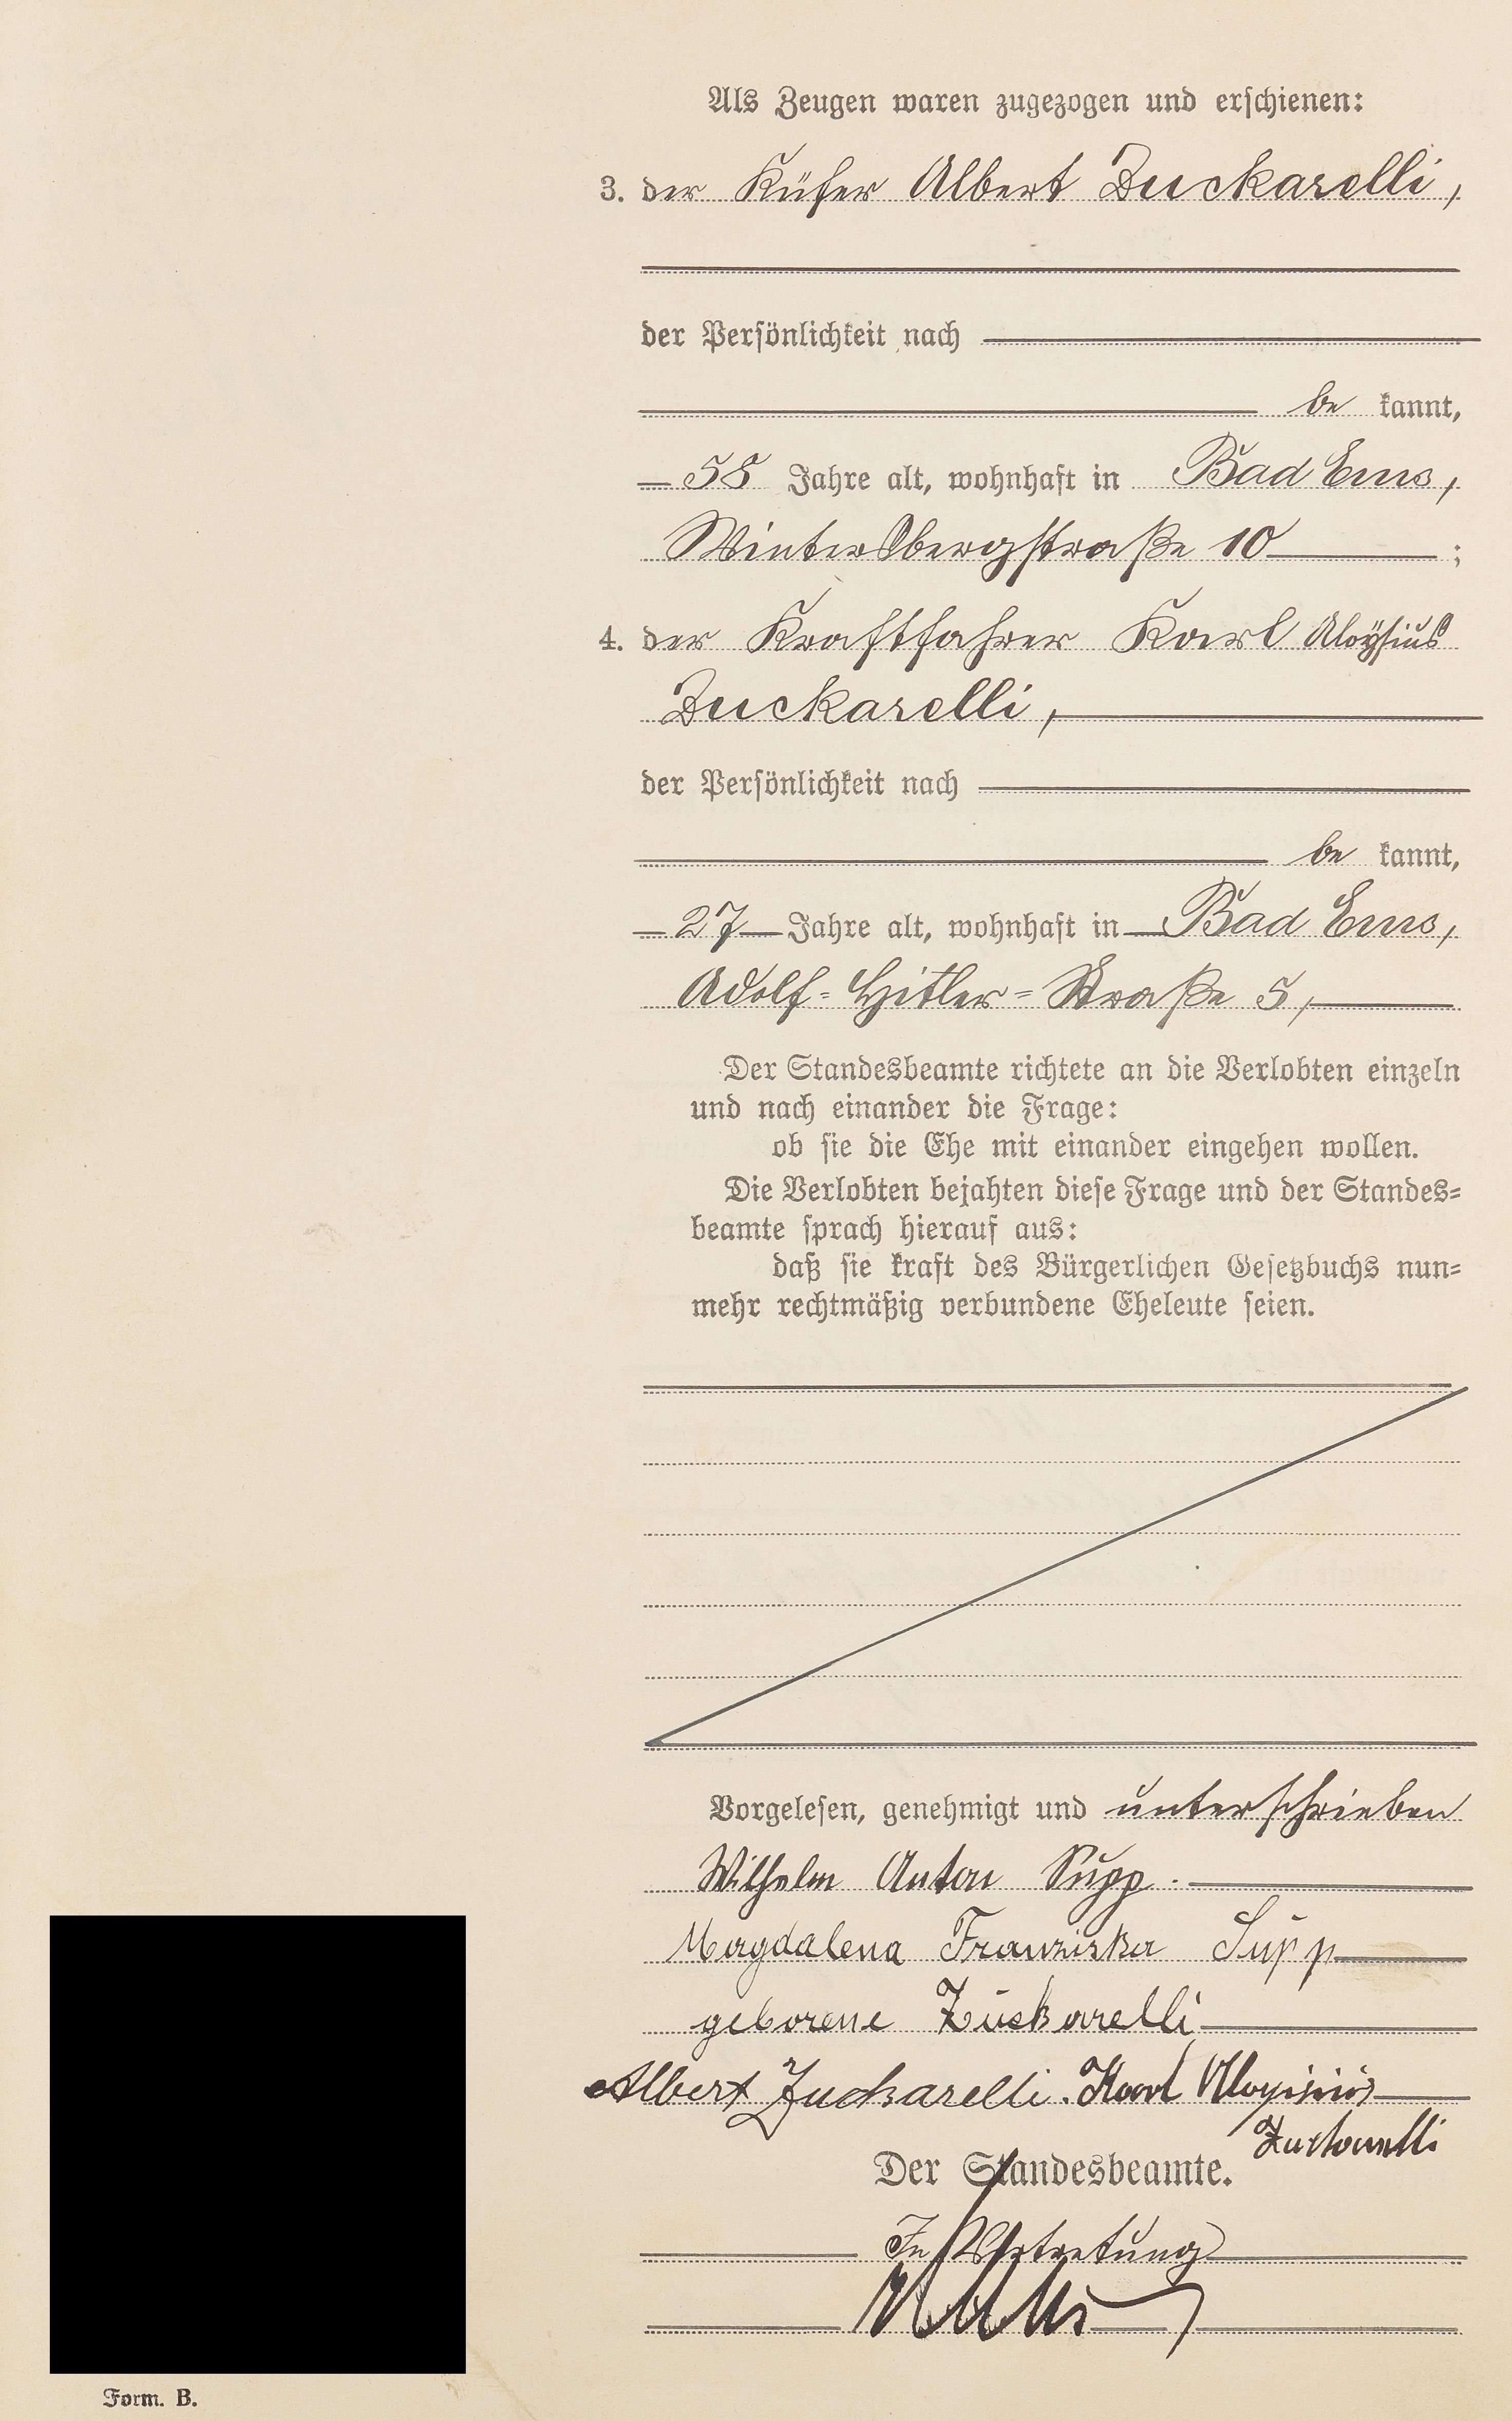 Als Zeugen waren zugezogen und erschienen:
3. der Küfer Albert Zuckarelli,
der Persönlichkeit nach
be kannt,
58 Jahre alt, wohnhaft in Bad Ems,
Wintersbergstraße 10 ;
4. der Kraftfahrer Karl Aloysius
Zuckarelli,
der Persönlichkeit nach
be kannt,
27 Jahre alt, wohnhaft in Bad Ems,
Adolf-Hitler-Straße 5,
Der Standesbeamte richtete an die Verlobten einzeln
und nach einander die Frage:
ob sie die Ehe mit einander eingehen wollen.
Die Verlobten bejahten diese Frage und der Standes-
beamte sprach hierauf aus:
daß sie kraft des Bürgerlichen Gesetzbuchs nun-
mehr rechtmäßig verbundene Eheleute seien.
Vorgelesen, genehmigt und unterschrieben
Wilhelm Anton Supp.
Magdalena Franziska Supp
geborene Zuckarelli
Albert Zuckarelli. Karl Aloysius
Zuckarelli
Der Standesbeamte.
In Vertretung
Form. B.